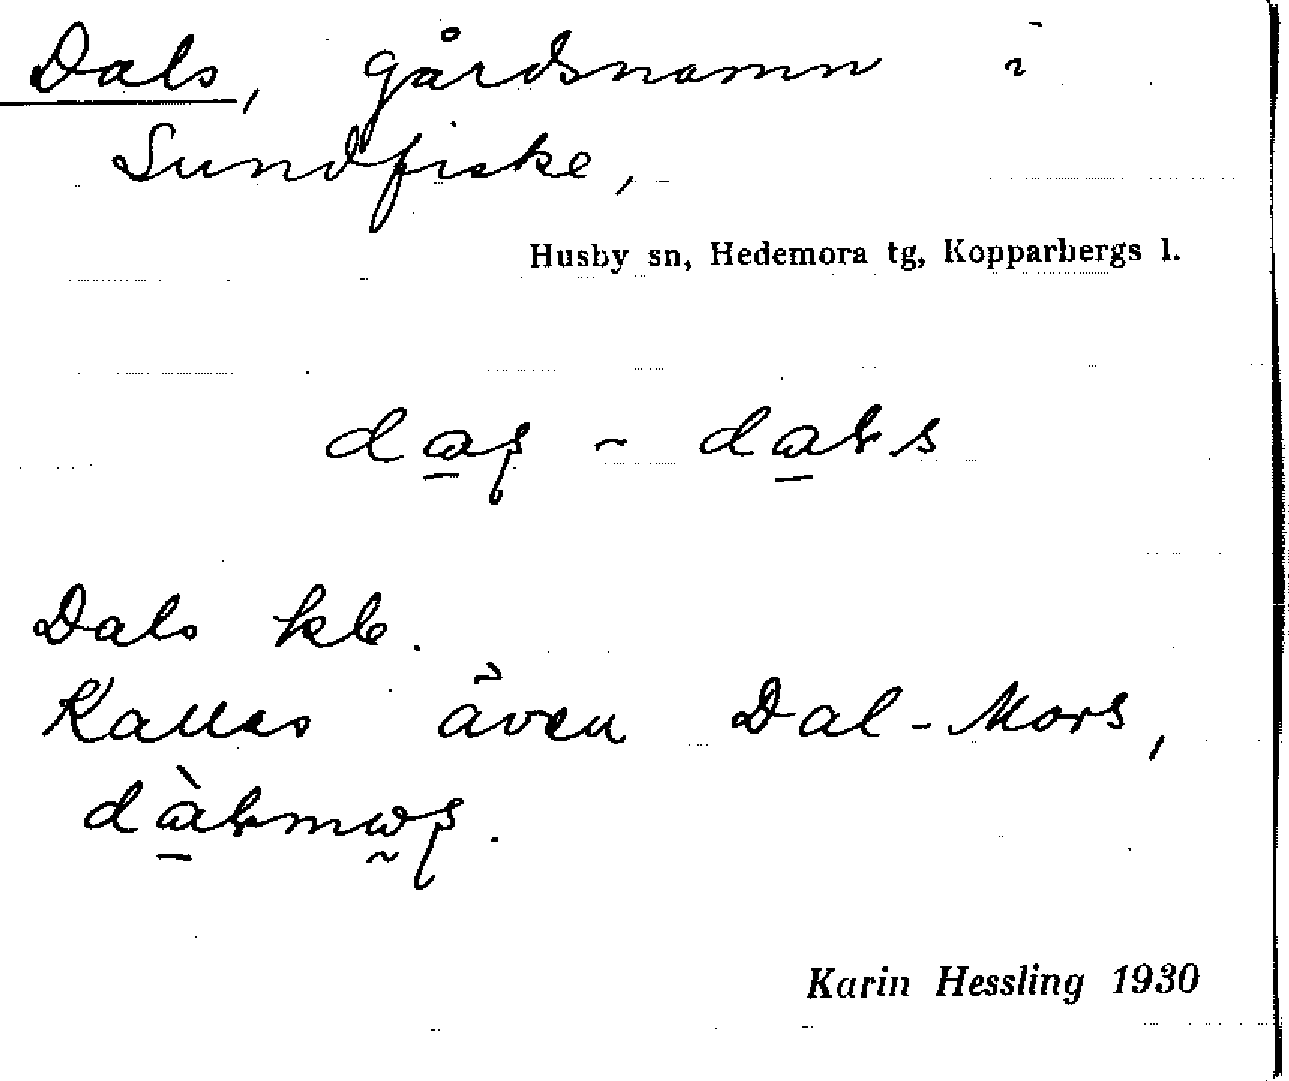 Dals, gårdsnamn i
Sundfiske,
Husby sn, Hedemora tg, Kopparbergs l.
Dals kb.
Kallas även Dal-Mors,
Karin Hessling 1930